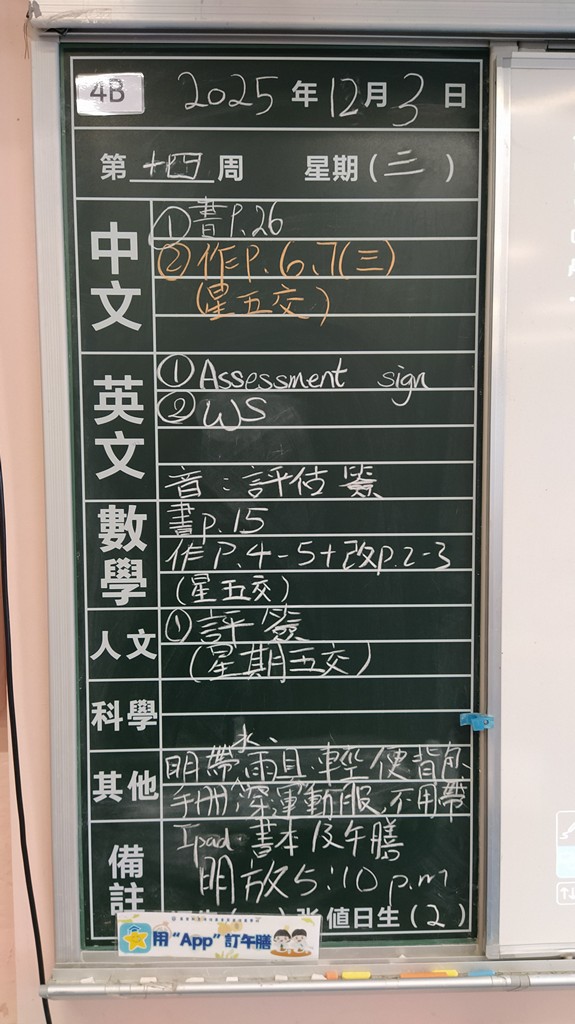 4B 2025年12月3日
第十四周 星期(三)
中文
①書P.26
②作P.6、7(三)
(星五交)
英文
①Assessment sign
②WS
音：評估簽
數學
書p.15
作P.4-5+改p.2-3
(星五交)
人文
①評簽
(星期五交)
科學
其他
水、
明帶雨具、輕便背包
手冊、深運動服,不用帶
備註
Ipad、書本及午膳
明放5:10 p.m
值日生(2)
用“App”訂午膳